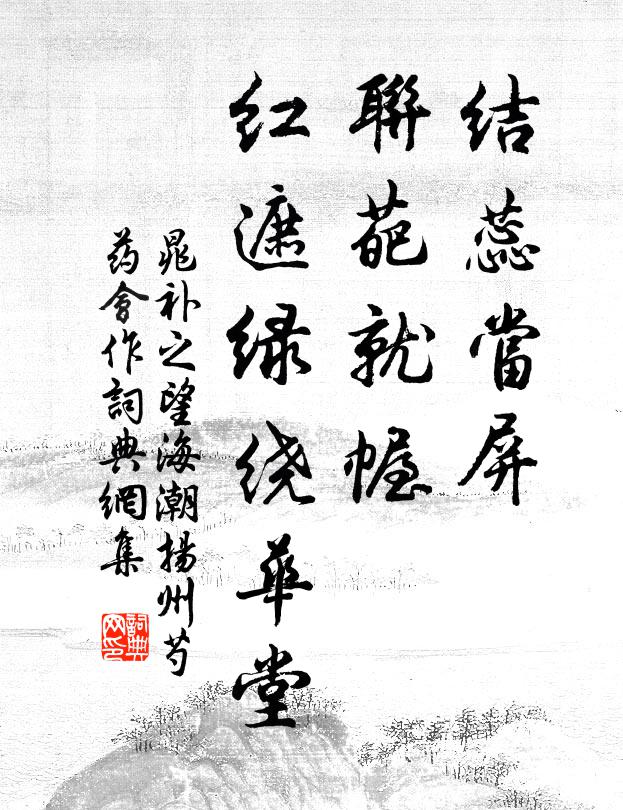 結蕊當屏
聯葩就幄
紅遮綠绕華堂
晁补之望海潮揚州芍
药會作詞典網集
詞典
网印